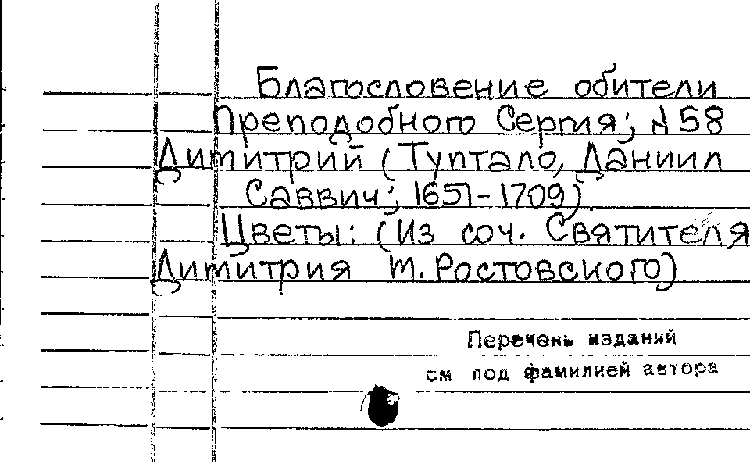 Благословение обители
Преподобного Сергия; №58
Димитрий (Туптало, Даниил
Саввич; 1651-1709).
Цветы: (Из соч. Святителя
Димитрия М. Ростовского)
Перечень изданий
см под фамилией автора